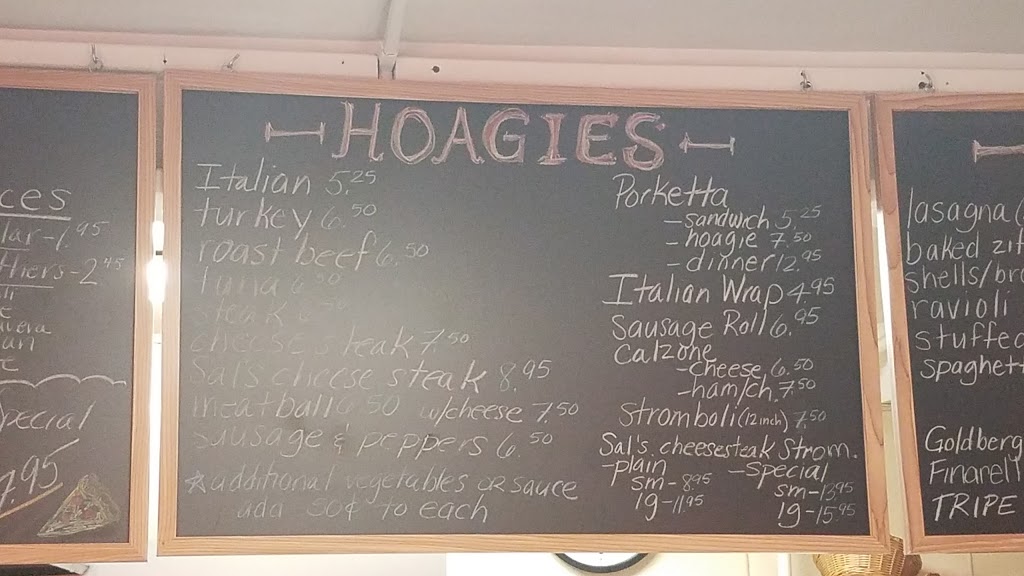 HOAGIES
Italian 5.25
turkey 6.50
roast beef 6.50
tuna 6.50
steak 6.50
cheese steak 7.50
Sal's cheese steak 8.95
meatball 6.50 w/cheese 7.50
sausage & peppers 6.50
*additional vegetables or sauce
add 50¢ to each
Porketta
-sandwich 5.25
-hoagie 7.50
-dinner 12.95
Italian Wrap 4.95
Sausage Roll 6.95
Calzone
-cheese 6.50
-ham/ch. 7.50
Stromboli (12 inch) 7.50
Sal's cheesesteak Strom.
-plain -Special
sm-8.95
lg-11.95
lg-15.95
ces
lar-1.95
thers-2.45
Special
.95
lasagna
baked zit
shells/bro
ravioli
stuffed
spaghett
Goldberg
Finarell
TRIPE